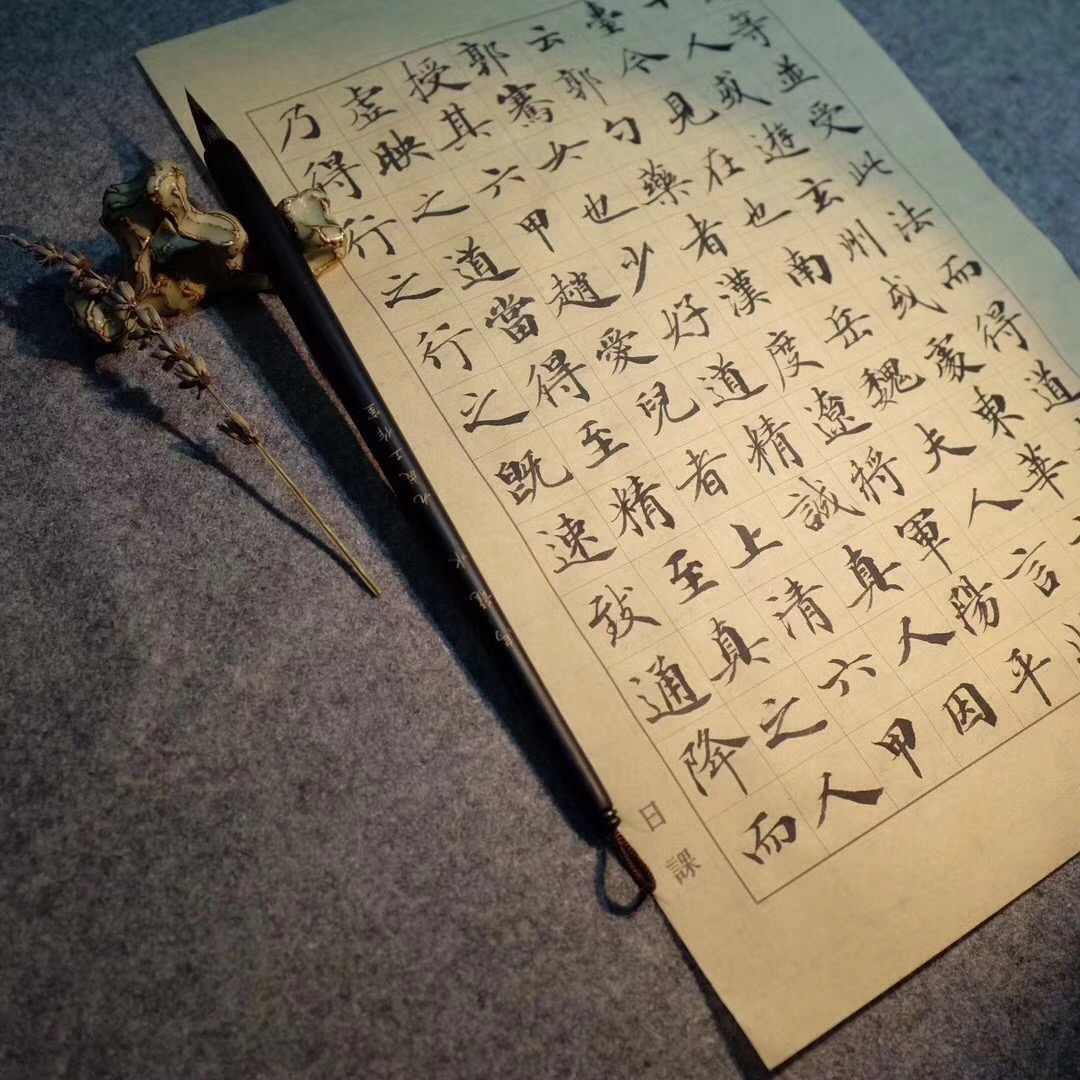 等並受此法而得道
人或遊玄州或處東華
臺令見在也南岳魏夫人言
云郭勺藥者漢度遼將軍陽平
郭騫女也少好道精誠真人因
授其六甲趙愛兒者上清六甲
虚映之道當得至精至真之人
乃得行之行之既速致通降而
日課